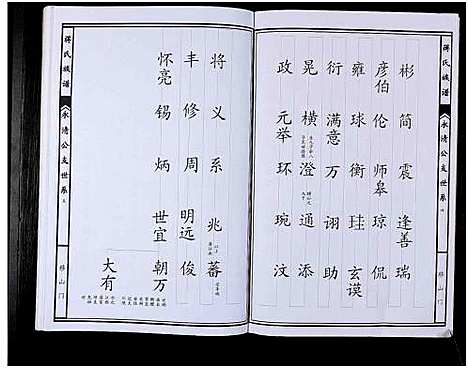 彬 简 震 逢善 瑞
彦伯 伦 师皋 琼 侃
雍 球 衡 珪 玄谟
衍 满意 万 诩 助
晃 横 澄 通 添
政 元举 环 琬 汶
将 义 系 兆 蕃
丰 修 周 明远 俊
怀亮 锡 炳 世宜 朝万
大有
蒋氏族谱 永清公支世系 移山门